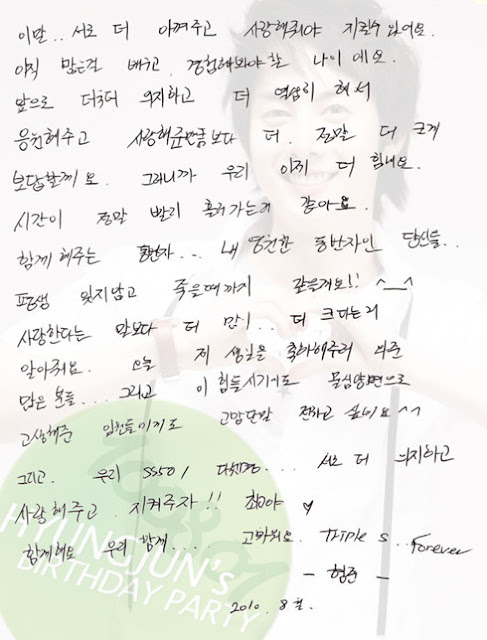 이만.. 서로 더 아껴주고 사랑해줘야 지킬수 있어요.
아직 많은걸 배우고, 경험해봐야할 나이에요.
앞으로 더욱더 의지하고 더 열심히 해서
응원해주고 사랑해준만큼보다 더. 정말 더 크게
보답할께요. 그러니까 우리 아자 더 힘내요.
시간이 정말 빨리 흘러가는거 같아요.
함께 해주는 동반자... 내 영원한 동반자인 당신들..
평생 잊지않고 죽을때까지 같을게요!! ^__^
사랑한다는 말보다 더 많이.. 더 크다는거
알아줘요. 오늘 제 생일을 축하해주러 와준
많은 분들... 그리고 이 힘든시기에도 물심양면으로
고생해준 임원들에게도 고맙단말 전하고 싶네요 ^^
그리고. 우리 SS501 다섯명.... 서로 더 의지하고
사랑해주고 지켜주자!! 최고야 ♥
함께해요 우리 함께.... 고마워요. Triple S... Forever
- 형준 -
2010. 8월.
HYUNGJUN'S
BIRTHDAY PARTY